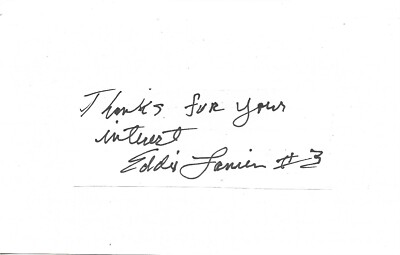 Thanks for your
interest
Eddie Lanier #3